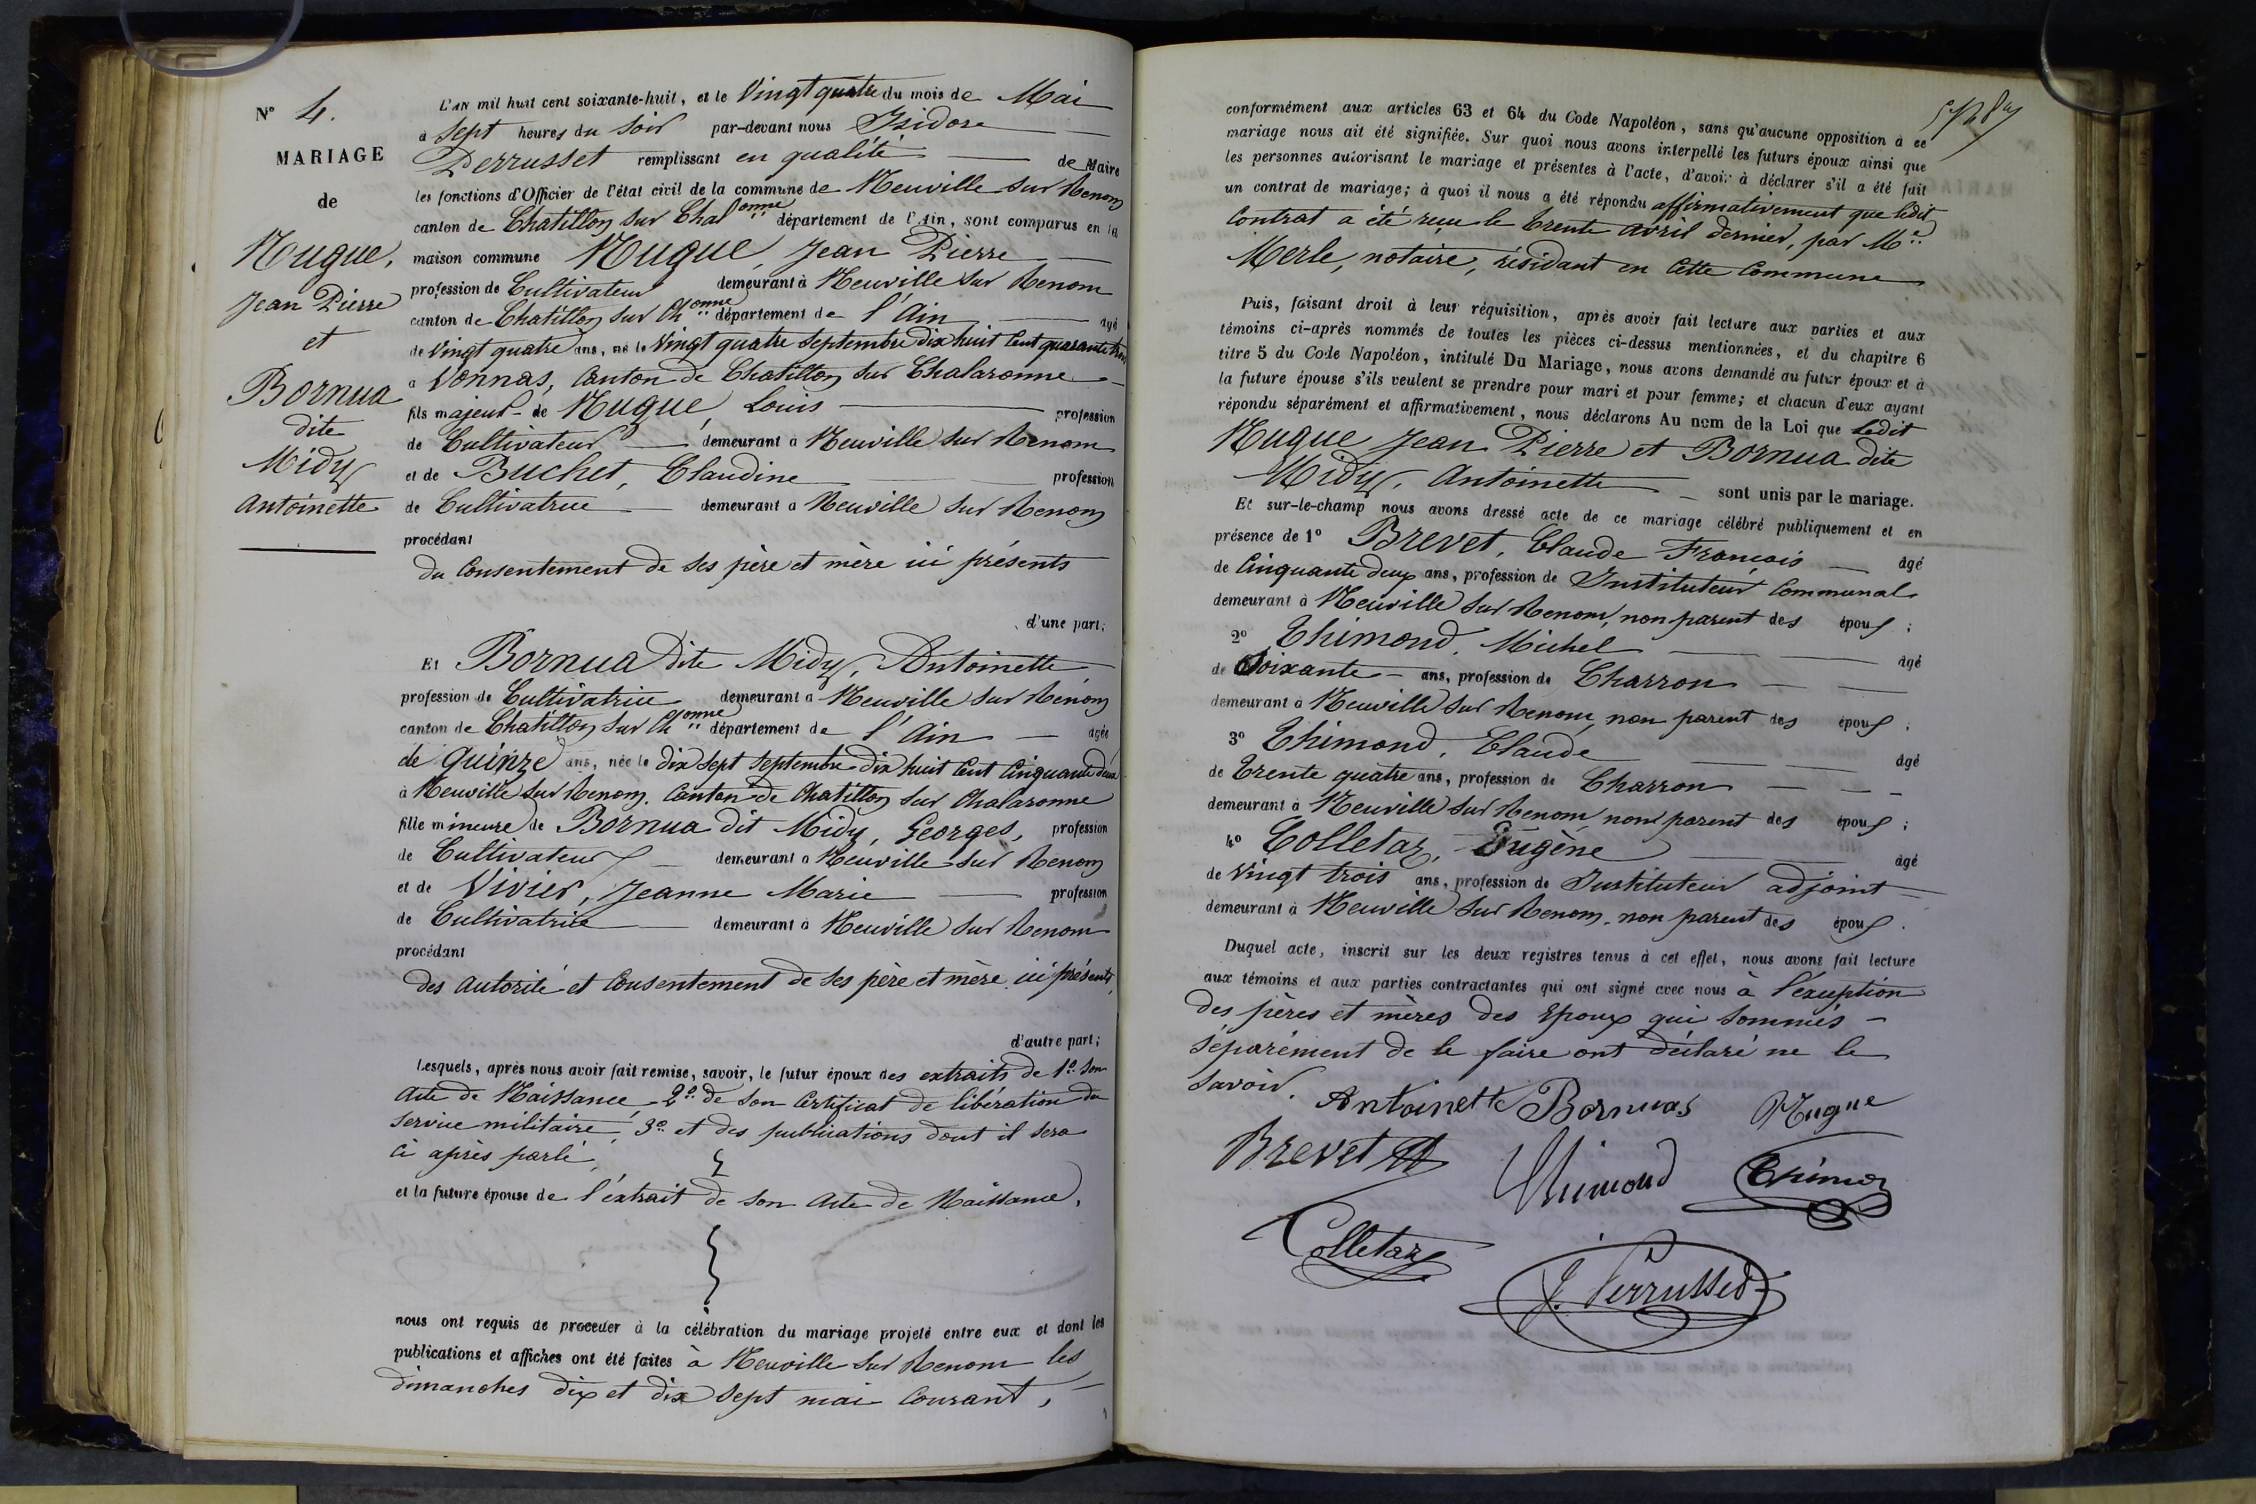 N° 4.
MARIAGE
de
Nugue,
Jean Pierre
et
Bornua
dite
Midy
Antoinette
L'AN mil huit cent soixante-huit, et le Vingt quatre du mois de Mai
à Sept heures du Soir par-devant nous Isidore
Perrusset remplissant en qualité de Maire
les fonctions d'Officier de l'état civil de la commune de Neuville sur Renom
canton de Chatillon sur Chalonne département de l'Ain, sont comparus en la
maison commune Nugue, Jean Pierre
profession de Cultivateur demeurant à Neuville sur Renom
canton de Chatillon sur Chonne département de l'Ain âgé
de Vingt quatre ans, né le Vingt quatre Septembre dix huit Cent quarante trois
à Vonnas, Canton de Chatillon sur Chalaronne
fils majeur de Nugue, Louis profession
de Cultivateur demeurant à Neuville sur Renom
et de Buchet, Claudine profession
de Cultivatrice demeurant à Neuville sur Renom
procédant
du Consentement de ses père et mère ici présents
d'une part;
Et Bornua dite Midy, Antoinette
profession de Cultivatrice demeurant à Neuville sur Renom
canton de Chatillon sur Chonne département de l'Ain âgée
de Quinze ans, née le dix sept Septembre dix huit Cent Cinquante deux
à Neuville sur Renom. Canton de Chatillon sur Chalaronne
fille mineure de Bornua dit Midy, Georges, profession
de Cultivateur demeurant à Neuville sur Renom
et de Vivier, Jeanne Marie profession
de Cultivatrice demeurant à Neuville sur Renom
procédant
des autorité et Consentement de ses père et mère ici présents,
d'autre part;
Lesquels, après nous avoir fait remise, savoir, le futur époux des extraits de 1° Son
Acte de Naissance 2° de son Certificat de libération du
Service militaire, 3° et des publications dont il sera
ci après parlé,
et la future épouse de l'extrait de son Acte de Naissance,
nous ont requis de procéder à la célébration du mariage projeté entre eux et dont les
publications et affiches ont été faites à Neuville sur Renom les
dimanches dix et dix sept mai Courant,
conformément aux articles 63 et 64 du Code Napoléon, sans qu'aucune opposition à ce
mariage nous ait été signifiée. Sur quoi nous avons interpellé les futurs époux ainsi que
les personnes autorisant le mariage et présentes à l'acte, d'avoir à déclarer s'il a été fait
un contrat de mariage; à quoi il nous a été répondu affirmativement que ledit
Contrat a été reçu le trente avril dernier, par Me
Merle, notaire, résidant en Cette Commune
Puis, faisant droit à leur réquisition, après avoir fait lecture aux parties et aux
témoins ci-après nommés de toutes les pièces ci-dessus mentionnées, et du chapitre 6
titre 5 du Code Napoléon, intitulé Du Mariage, nous avons demandé au futur époux et à
la future épouse s'ils veulent se prendre pour mari et pour femme; et chacun d'eux ayant
répondu séparément et affirmativement, nous déclarons Au nom de la Loi que ledit
Nugue Jean Pierre et Bornua dite
Midy, Antoinette sont unis par le mariage.
Et sur-le-champ nous avons dressé acte de ce mariage célébré publiquement et en
présence de 1° Brevet, Claude François âgé
de Cinquante deux ans, profession de Instituteur Communal
demeurant à Neuville sur Renom, non parent des époux;
2° Thimond, Michel âgé
de Soixante ans, profession de Charron
demeurant à Neuville sur Renom, non parent des époux;
3° Thimond, Claude âgé
de trente quatre ans, profession de Charron
demeurant à Neuville sur Renom, non parent des époux;
4° Colletaz, Eugène âgé
de Vingt trois ans, profession de Instituteur adjoint
demeurant à Neuville sur Renom, non parent des époux.
Duquel acte, inscrit sur les deux registres tenus à cet effet, nous avons fait lecture
aux témoins et aux parties contractantes qui ont signé avec nous à l'exception
des pères et mères des Epoux qui sommés
séparément de le faire ont déclaré ne le
savoir.
Antoinette Bornuas Nugue
Brevet Thimond Thimon
Colletaz
J. Perrusset